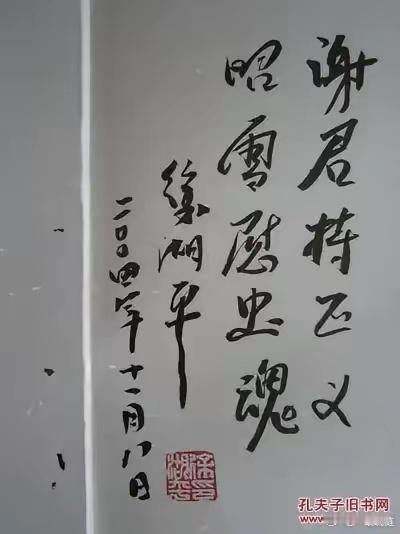 谢君持正义
昭雪慰忠魂
徐湖平
二〇〇四年十一月八日
徐湖平印
孔夫子旧书网